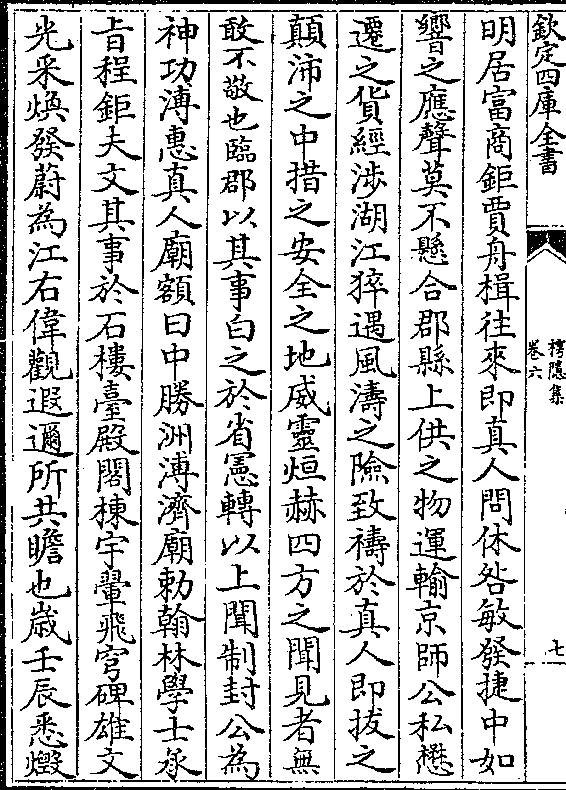 欽定四庫全書
樗隱集
卷六
七
明居富商鉅賈舟楫往來即真人問休咎敏發捷中如
響之應聲莫不懸合郡縣上供之物運輸京師公私懋
遷之貨經涉湖江猝遇風濤之險致禱於真人即拔之
顛沛之中措之安全之地威靈烜赫四方之聞見者無
敢不敬也臨郡以其事白之於省憲轉以上聞制封公為
神功溥惠真人廟額曰中勝洲溥濟廟勅翰林學士承
旨程鉅夫文其事於石樓臺殿閣棟宇翬飛穹碑雄文
光采煥發蔚為江右偉觀遐邇所共瞻也歲壬辰悉燬